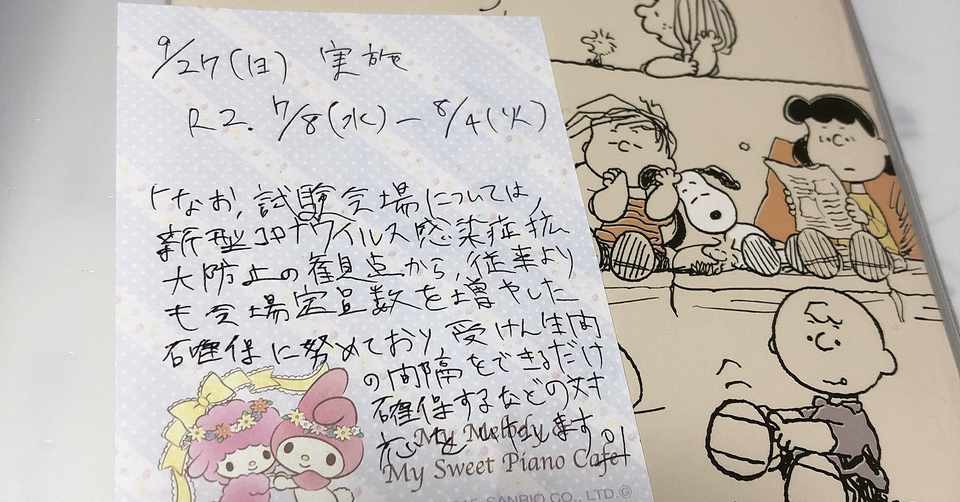 9/27(日) 実施
R2. 7/8(水)-8/4(火)
「なお、試験会場については、
新型コロナウイルス感染症拡
大防止の観点から、従来より
も会場定員数を増やした
確保に努めており、受けん生間
の間隔をできるだけ
確保するなどの対
応をいたします。」
My Melody
My Sweet Piano Cafe
SANRIO CO., LTD.©